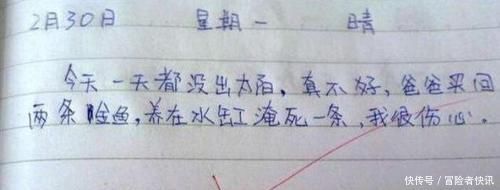 2月30日 星期一 晴
今天一天都没出太阳，真不好，爸爸买回
两条金鱼，养在水缸淹死一条，我很伤心。
快传号 / 冒险者快讯